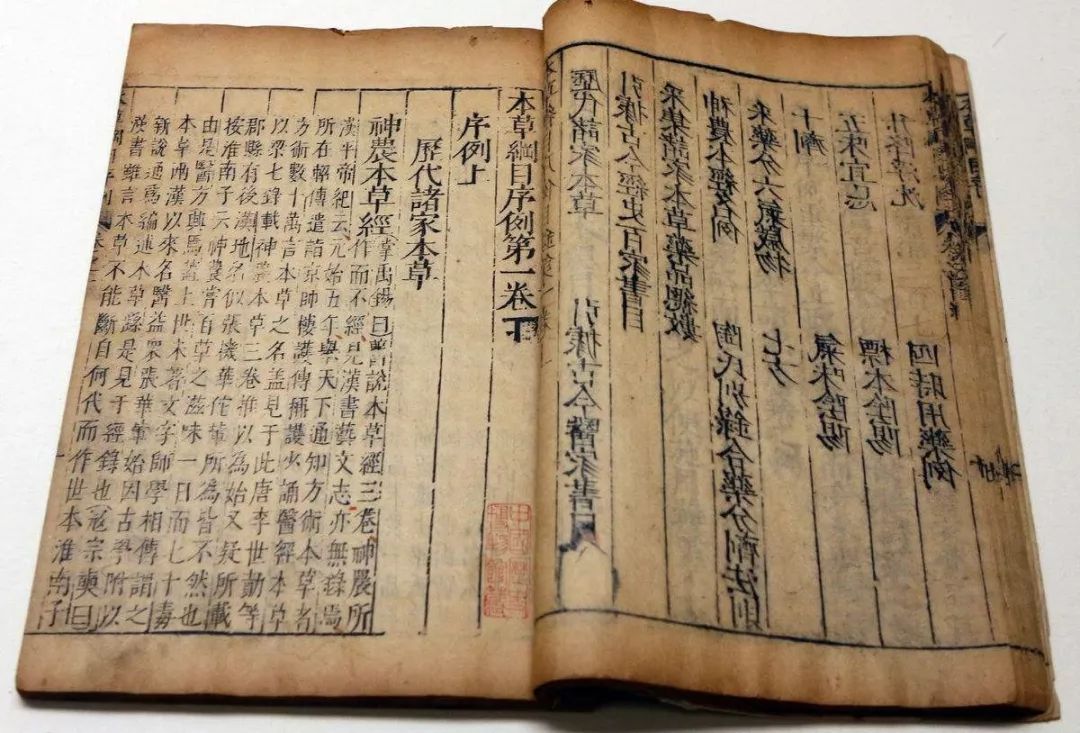 歷代諸家本草 引據古今醫家書目
引據古今經史百家書目
采集諸家本草藥品總數
神農本經名例 陶氏別錄合藥分劑法則
采藥分六氣歲物 七方
十劑 氣味陰陽
五味宜忌 標本陰陽
升降浮沉 四時用藥例
本草綱目序例第一卷下
序例上
歷代諸家本草
神農本草經 掌禹錫曰舊說本草經三卷神農所
作而不經見漢書藝文志亦無錄焉
漢平帝紀云元始五年舉天下通知方術本草者
所在軺傳遣詣京師樓護傳稱護少誦醫經本草
方術數十萬言本草之名蓋見于此唐李世勣等
以梁七錄載神農本草三卷推以為始又疑所載
郡縣有後漢地名似張機華佗輩所為皆不然也
按淮南子云神農嘗百草之滋味一日而七十毒
由是醫方興焉蓋上世未著文字師學相傳謂之
本草兩漢以來名醫益眾張華輩始因古學附以
新說通為編述本草繇是見于經錄也寇宗奭曰
漢書雖言本草不能斷自何代而作世本淮南子